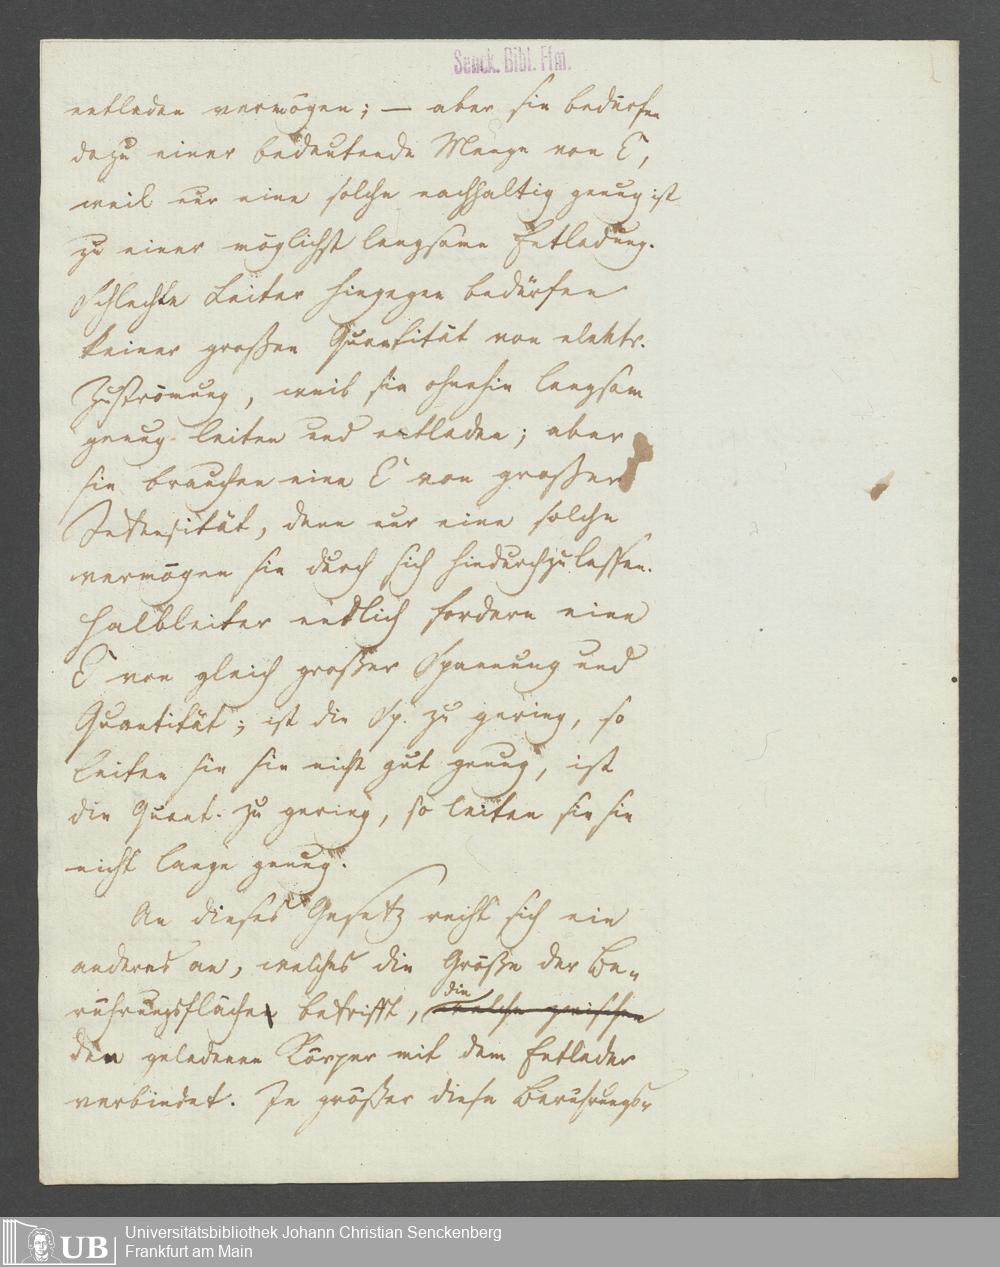 Senck. Bibl. Ffm.
entladen vermögen; — aber sie bedürfen
dazu einer bedeutende Menge von E,
weil nur eine solche nachhaltig genug ist
zu einer möglichst langsame Entladung.
Schlechte Leiter hingegen bedürfen
keiner großen Quantität von elektr.
Zuströmung, weil sie ohnehin langsam
genug leiten und entladen; aber
sie brauchen eine E von großer
Intensität, denn nur eine solche
vermögen sie durch sich hindurchzulassen.
Halbleiter endlich fordern eine
E von gleich großer Spannung und
Quantität; ist die Sp. zu gering, so
leiten sie sie nicht gut genug, ist
die Quant. zu gering, so leiten sie sie
nicht lange genug.
An dieses Gesetz reiht sich ein
anderes an, welches die Größe der Be-
rührungsfläche betrifft, die welche zwischen
den geladenen Körper mit dem Entlader
verbindet. Je größer diese Berührungs-
Universitätsbibliothek Johann Christian Senckenberg
Frankfurt am Main
UB